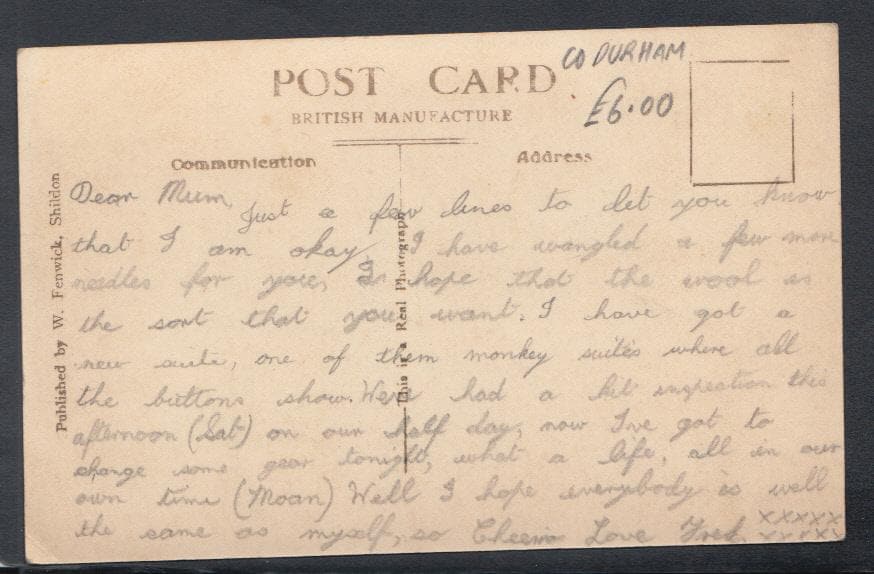 CO DURHAM
£6.00
POST CARD
BRITISH MANUFACTURE
Communication
Address
Published by W. Fenwick, Shildon
This is a Real Photograph
Dear Mum,
Just a few lines to let you know
that I am okay, I have wangled a few more
needles for you, I hope that the wool is
the sort that you want. I have got a
new suite, one of them monkey suites where all
the buttons show. We've had a kit inspeation this
afternoon (Sat) on our half day, now I've got to
change some gear tonight, what a life, all in our
own time (Moan) Well I hope everybody is well
the same as myself, so Cheerio Love Fred. XXXXX
XXXXX